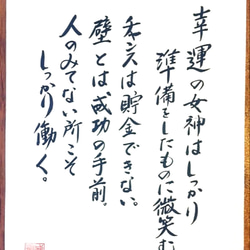 幸運の女神はしっかり
準備をしたものに微笑む
チャンスは貯金できない。
壁とは、成功の手前。
人のみてない所こそ
しっかり働く。